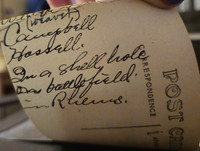 Campbell
Hassell.
In a shell hole
on battlefield.
— Rheims.
CORRESPONDENCE
POST C